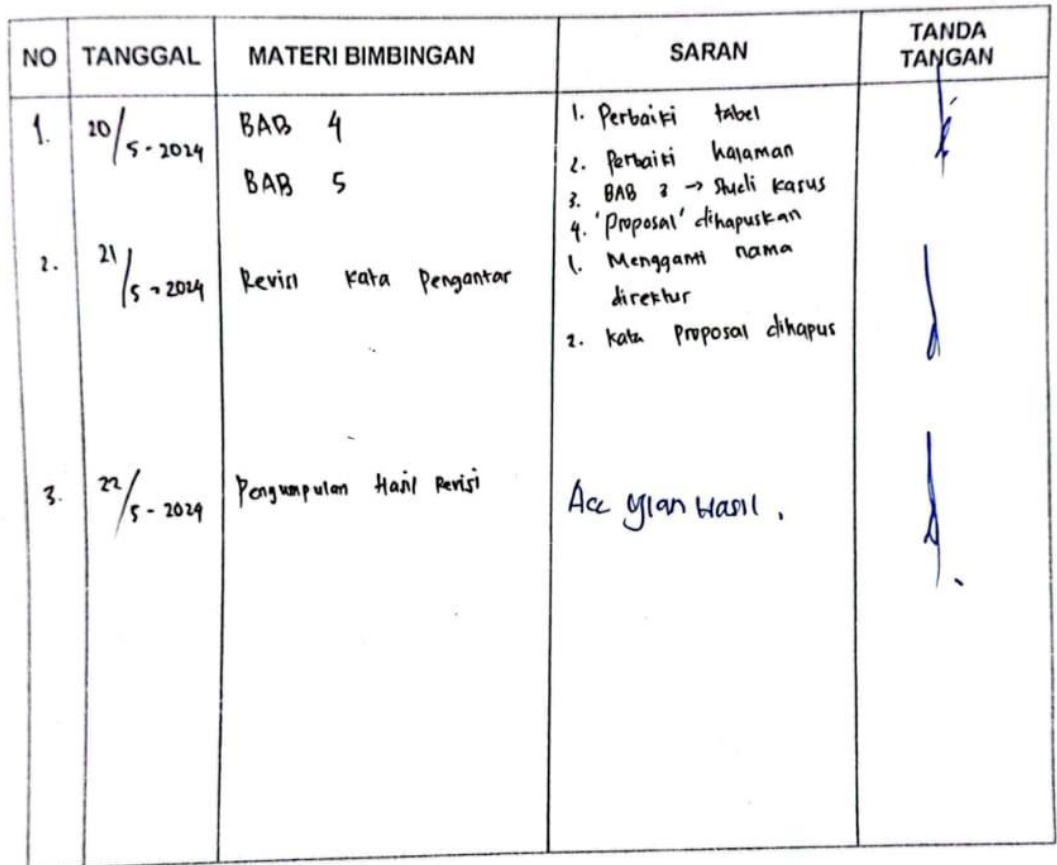 NO TANGGAL MATERI BIMBINGAN SARAN TANDA TANGAN
1. 20/5-2024 BAB 4
BAB 5
1. Perbaiki tabel
2. Perbaiki halaman
3. BAB 3 → Studi kasus
4. 'Proposal' dihapuskan
2. 21/5-2024 Revisi Kata Pengantar
1. Mengganti nama
direktur
2. Kata Proposal dihapus
3. 22/5-2024 Pengumpulan Hasil Revisi
Acc Ujian Hasil.